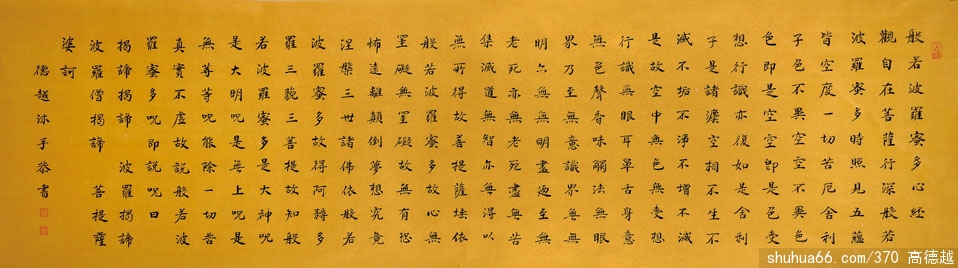 般若波羅蜜多心經
觀自在菩薩行深般若
波羅蜜多時照見五蘊
皆空度一切苦厄舍利
子色不異空空不異色
色即是空空即是色受
想行識亦復如是舍利
子是諸灋空相不生不
滅不垢不淨不增不減
是故空中無色無受想
行識無眼耳鼻舌身意
無色聲香味觸法無眼
界乃至無意識界無無
明亦無無明盡迺至無
老死亦無老死盡無苦
集滅道無智亦無得以
無所得故菩提薩埵依
般若波羅蜜多故心無
罣礙無罣礙故無有恐
怖遠離顛倒夢想究竟
涅槃三世諸佛依般若
波羅蜜多故得阿耨多
羅三藐三菩提故知般
若波羅蜜多是大神呪
是大明呪是無上呪是
無等等呪能除一切苦
真實不虛故說般若波
羅蜜多呪即說呪曰
揭諦揭諦 波羅揭諦
波羅僧揭諦 菩提薩
婆訶
德越沐手恭書
shuhua66.com/370 高德越